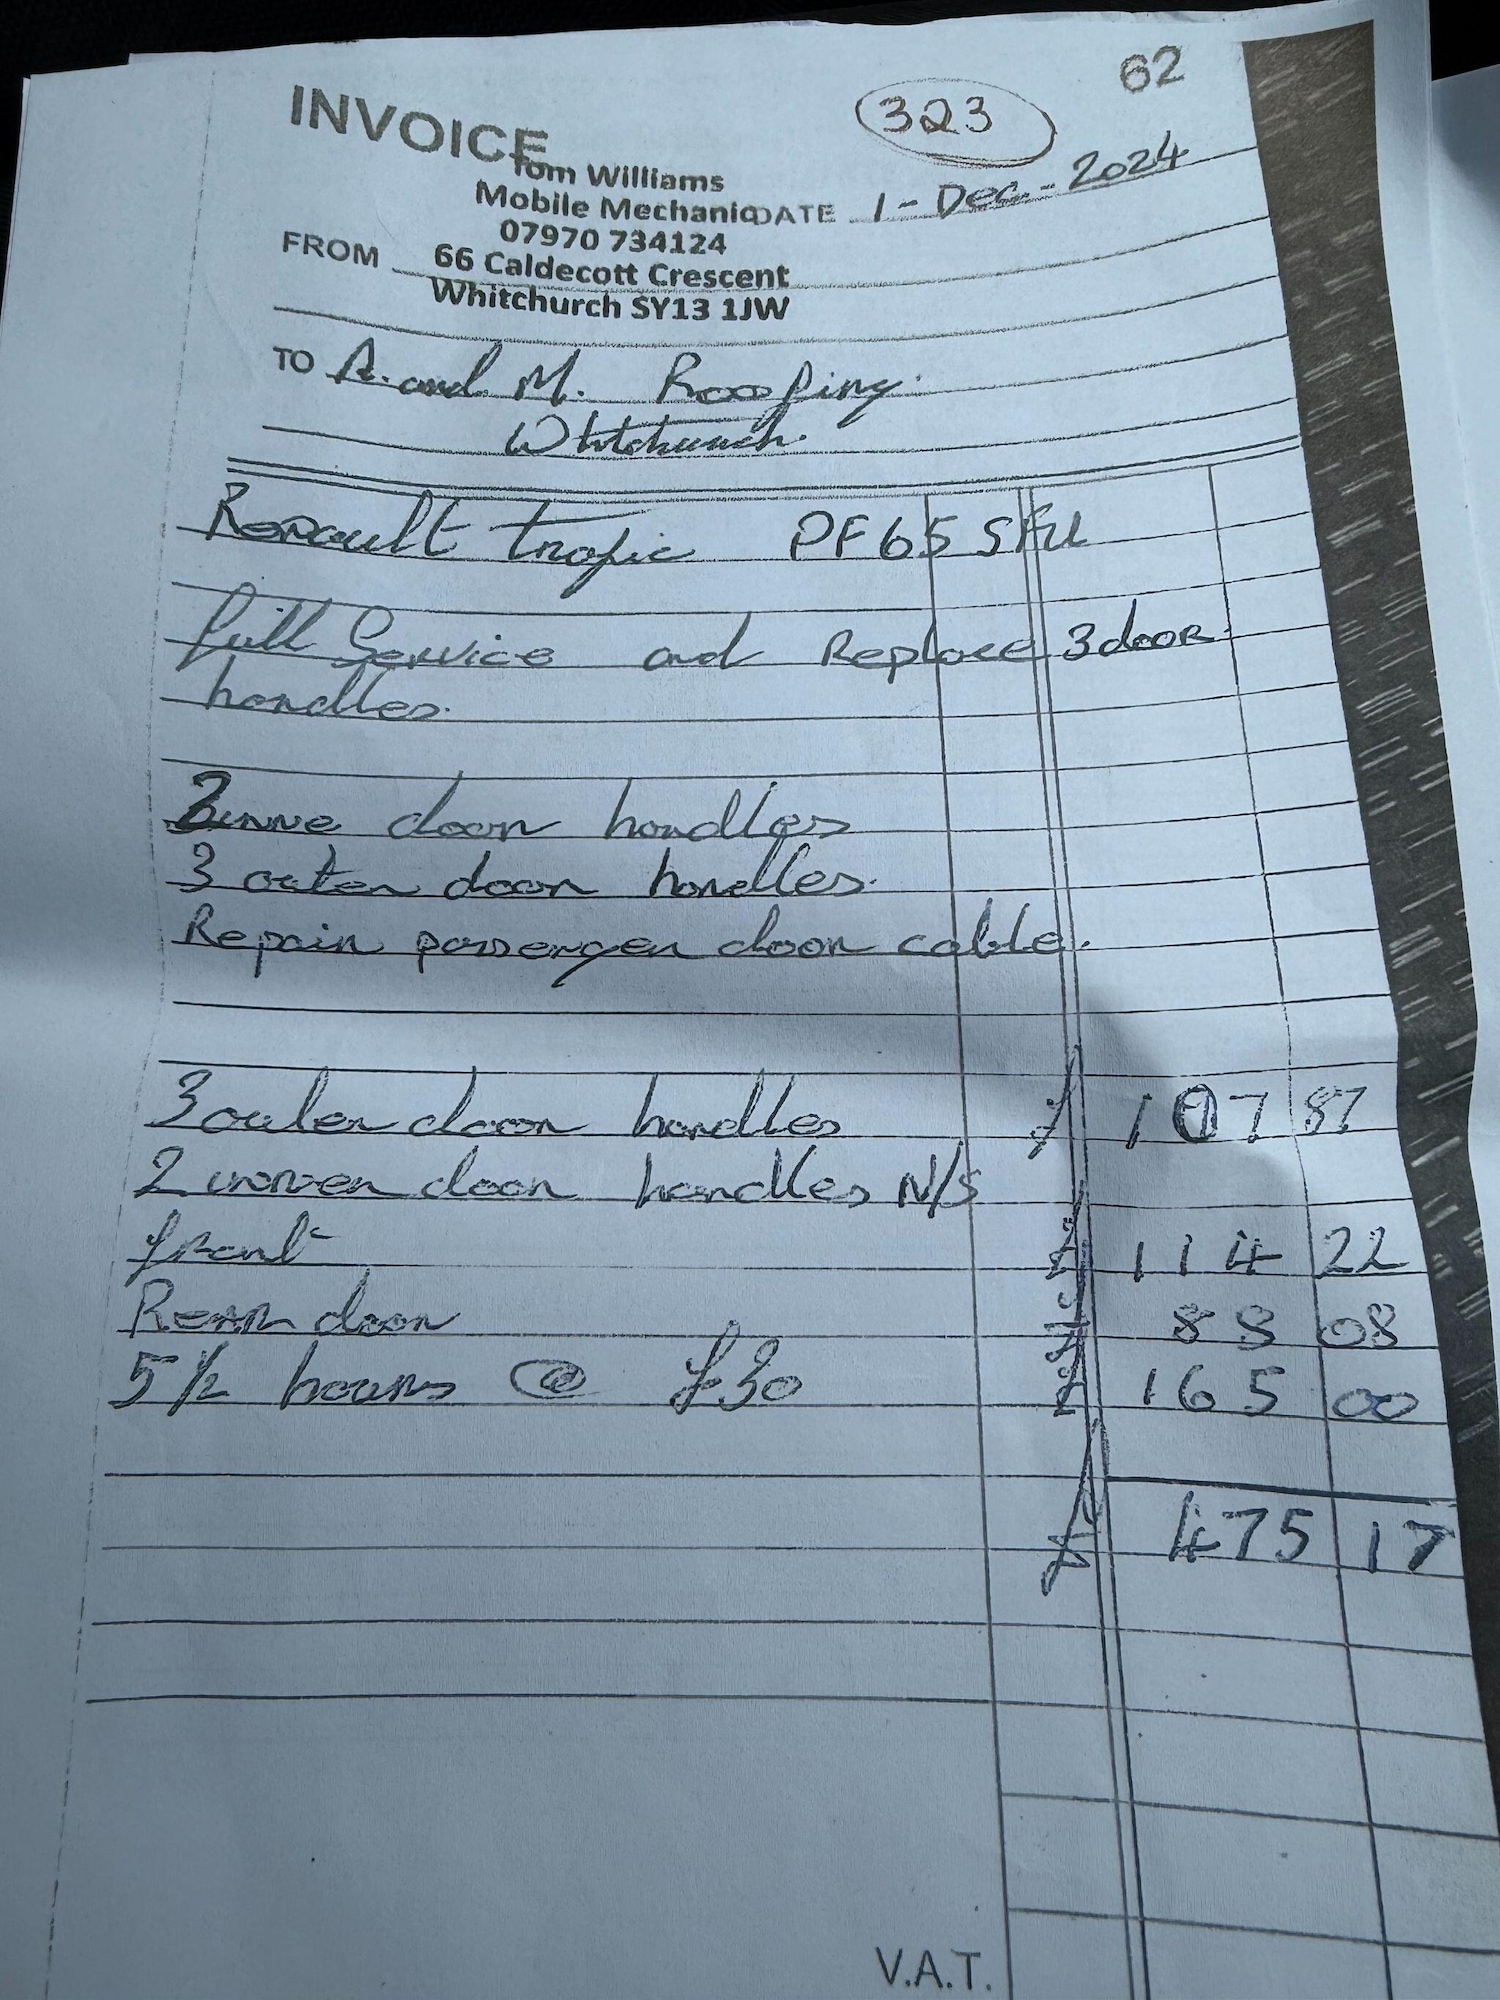 62
323
INVOICE
Tom Williams
Mobile Mechanic
DATE 1-Dec-2024
07970 734124
FROM 66 Caldecott Crescent
Whitchurch SY13 1JW
TO A. and M. Roofing.
Whitchurch.
Renault Trafic PF65
full Service and Replace 3 door
handles.
2 door handles
3 outer door handles.
Repair passenger door cable.
3 outer door handles £ 107 87
2 door handles N/S
front £ 114 22
Rear door £ 88 08
5 1/2 hours @ £30 £ 165 00
£ 475 17
V.A.T.